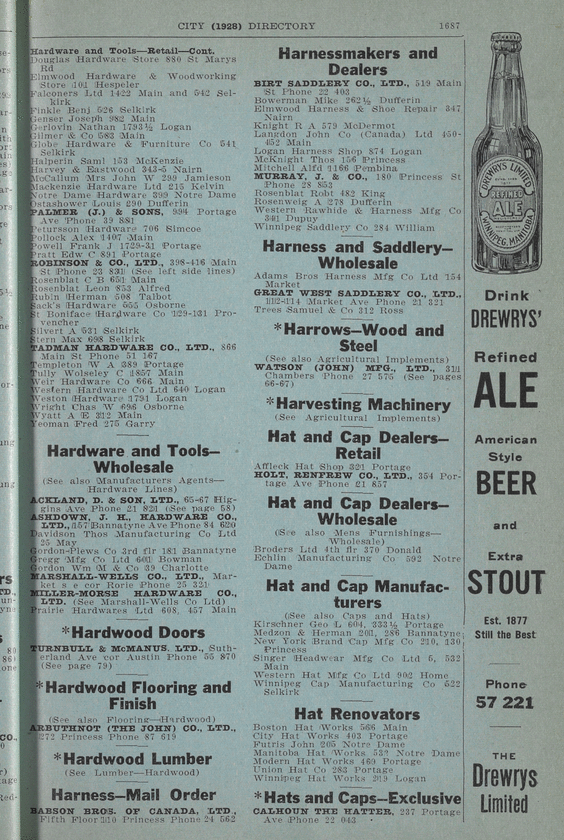 CITY (1928) DIRECTORY 1687
Hardware and Tools—Retail—Cont.
Douglas Hardware Store 880 St Marys
Rd
Elmwood Hardware & Woodworking
Store 101 Hespeler
Falconers Ltd 1422 Main and 542 Sel-
kirk
Finkle Benj 526 Selkirk
Genser Joseph 982 Main
Gerlovin Nathan 1793½ Logan
Gilmer & Co 583 Main
Globe Hardware & Furniture Co 541
Selkirk
Halperin Saml 153 McKenzie
Harvey & Eastwood 343-5 Nairn
McCallum Mrs John W 299 Jamieson
Mackenzie Hardware Ltd 215 Kelvin
Notre Dame Hardware 399 Notre Dame
Ostashower Louis 290 Dufferin
PALMER (J.) & SONS, 994 Portage
Ave Phone 39 881
Petursson Hardware 706 Simcoe
Pollock Alex 1407 Main
Powell Frank J 1729-31 Portage
Pratt Edw C 891 Portage
ROBINSON & CO., LTD., 398-416 Main
St Phone 23 831 (See left side lines)
Rosenblat C B 651 Main
Rosenblat Leon 853 Alfred
Rubin Herman 508 Talbot
Sack's Hardware 555 Osborne
St Boniface Hardware Co 129-131 Pro-
vencher
Silvert A 531 Selkirk
Stern Max 698 Selkirk
TADMAN HARDWARE CO., LTD., 866
Main St Phone 51 167
Templeton W A 389 Portage
Tully Wolseley C 1857 Main
Weir Hardware Co 666 Main
Western Hardware Co Ltd 640 Logan
Weston Hardware 1791 Logan
Wright Chas W 696 Osborne
Wyatt A E 312 Main
Yeoman Fred 275 Garry
Hardware and Tools—
Wholesale
(See also Manufacturers Agents—
Hardware Lines)
ACKLAND, D. & SON, LTD., 65-67 Hig-
gins Ave Phone 21 821 (See page 58)
ASHDOWN, J. H., HARDWARE CO.,
LTD., 157 Bannatyne Ave Phone 84 620
Davidson Thos Manufacturing Co Ltd
25 May
Gordon-Plews Co 3rd flr 181 Bannatyne
Gregg Mfg Co Ltd 601 Bowman
Gordon Wm M & Co 39 Charlotte
MARSHALL-WELLS CO., LTD., Mar-
ket s e cor Rorie Phone 25 321
MILLER-MORSE HARDWARE CO.,
LTD. (See Marshall-Wells Co Ltd)
Prairie Hardwares Ltd 608, 457 Main
*Hardwood Doors
TURNBULL & McMANUS, LTD., Suth-
erland Ave cor Austin Phone 55 870
(See page 79)
*Hardwood Flooring and
Finish
(See also Flooring—Hardwood)
ARBUTHNOT (THE JOHN) CO., LTD.,
272 Princess Phone 87 619
*Hardwood Lumber
(See Lumber—Hardwood)
Harness—Mail Order
BABSON BROS. OF CANADA, LTD.,
Fifth Floor 310 Princess Phone 24 562
Harnessmakers and
Dealers
BIRT SADDLERY CO., LTD., 519 Main
St Phone 22 403
Bowerman Mike 262½ Dufferin
Elmwood Harness & Shoe Repair 347
Nairn
Knight R A 579 McDermot
Langdon John Co (Canada) Ltd 450-
452 Main
Logan Harness Shop 874 Logan
McKnight Thos 156 Princess
Mitchell Alfd 1166 Pembina
MURRAY, J. & CO., 180 Princess St
Phone 28 853
Rosenblat Robt 482 King
Rosenweig A 278 Dufferin
Western Rawhide & Harness Mfg Co
341 Dupuy
Winnipeg Saddlery Co 284 William
Harness and Saddlery—
Wholesale
Adams Bros Harness Mfg Co Ltd 154
Market
GREAT WEST SADDLERY CO., LTD.,
112-114 Market Ave Phone 21 321
Trees Samuel & Co 312 Ross
*Harrows—Wood and
Steel
(See also Agricultural Implements)
WATSON (JOHN) MFG., LTD., 311
Chambers Phone 27 575 (See pages
66-67)
*Harvesting Machinery
(See Agricultural Implements)
Hat and Cap Dealers—
Retail
Affleck Hat Shop 321 Portage
HOLT, RENFREW CO., LTD., 354 Por-
tage Ave Phone 21 857
Hat and Cap Dealers—
Wholesale
(See also Mens Furnishings—
Wholesale)
Broders Ltd 4th flr 370 Donald
Echlin Manufacturing Co 592 Notre
Dame
Hat and Cap Manufac-
turers
(See also Caps and Hats)
Kirschner Geo L 604, 333½ Portage
Medzon & Herman 201, 286 Bannatyne
New York Brand Cap Mfg Co 210, 130
Princess
Singer Headwear Mfg Co Ltd 6, 532
Main
Western Hat Mfg Co Ltd 902 Home
Winnipeg Cap Manufacturing Co 522
Selkirk
Hat Renovators
Boston Hat Works 566 Main
City Hat Works 403 Portage
Futris John 205 Notre Dame
Manitoba Hat Works 532 Notre Dame
Modern Hat Works 469 Portage
Union Hat Co 283 Portage
Winnipeg Hat Works 219 Logan
*Hats and Caps—Exclusive
CALHOUN THE HATTER, 237 Portage
Ave Phone 22 043
DREWRYS LIMITED
REFINED
ALE
WINNIPEG, MANITOBA
Drink
DREWRYS'
Refined
ALE
American
Style
BEER
and
Extra
STOUT
Est. 1877
Still the Best
Phone
57 221
THE
Drewrys
Limited